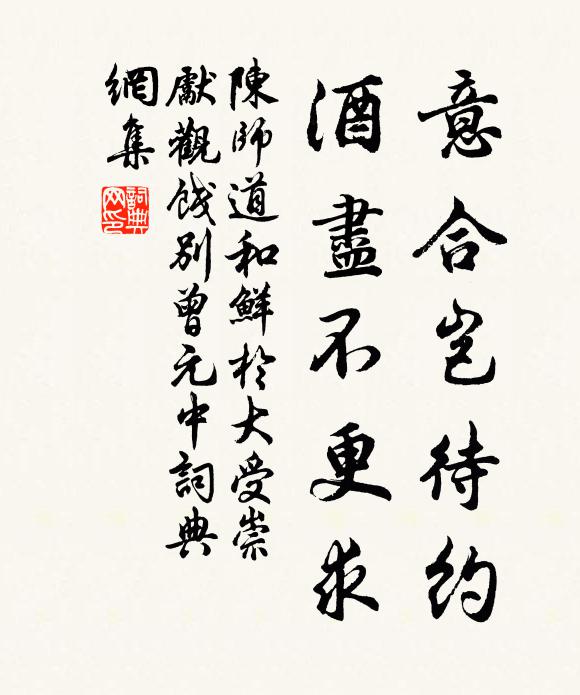 意合豈待約
酒盡不更求
陳師道和鮮於大受崇
獻觀餞別曾元中詞典
網集
詞典
网印